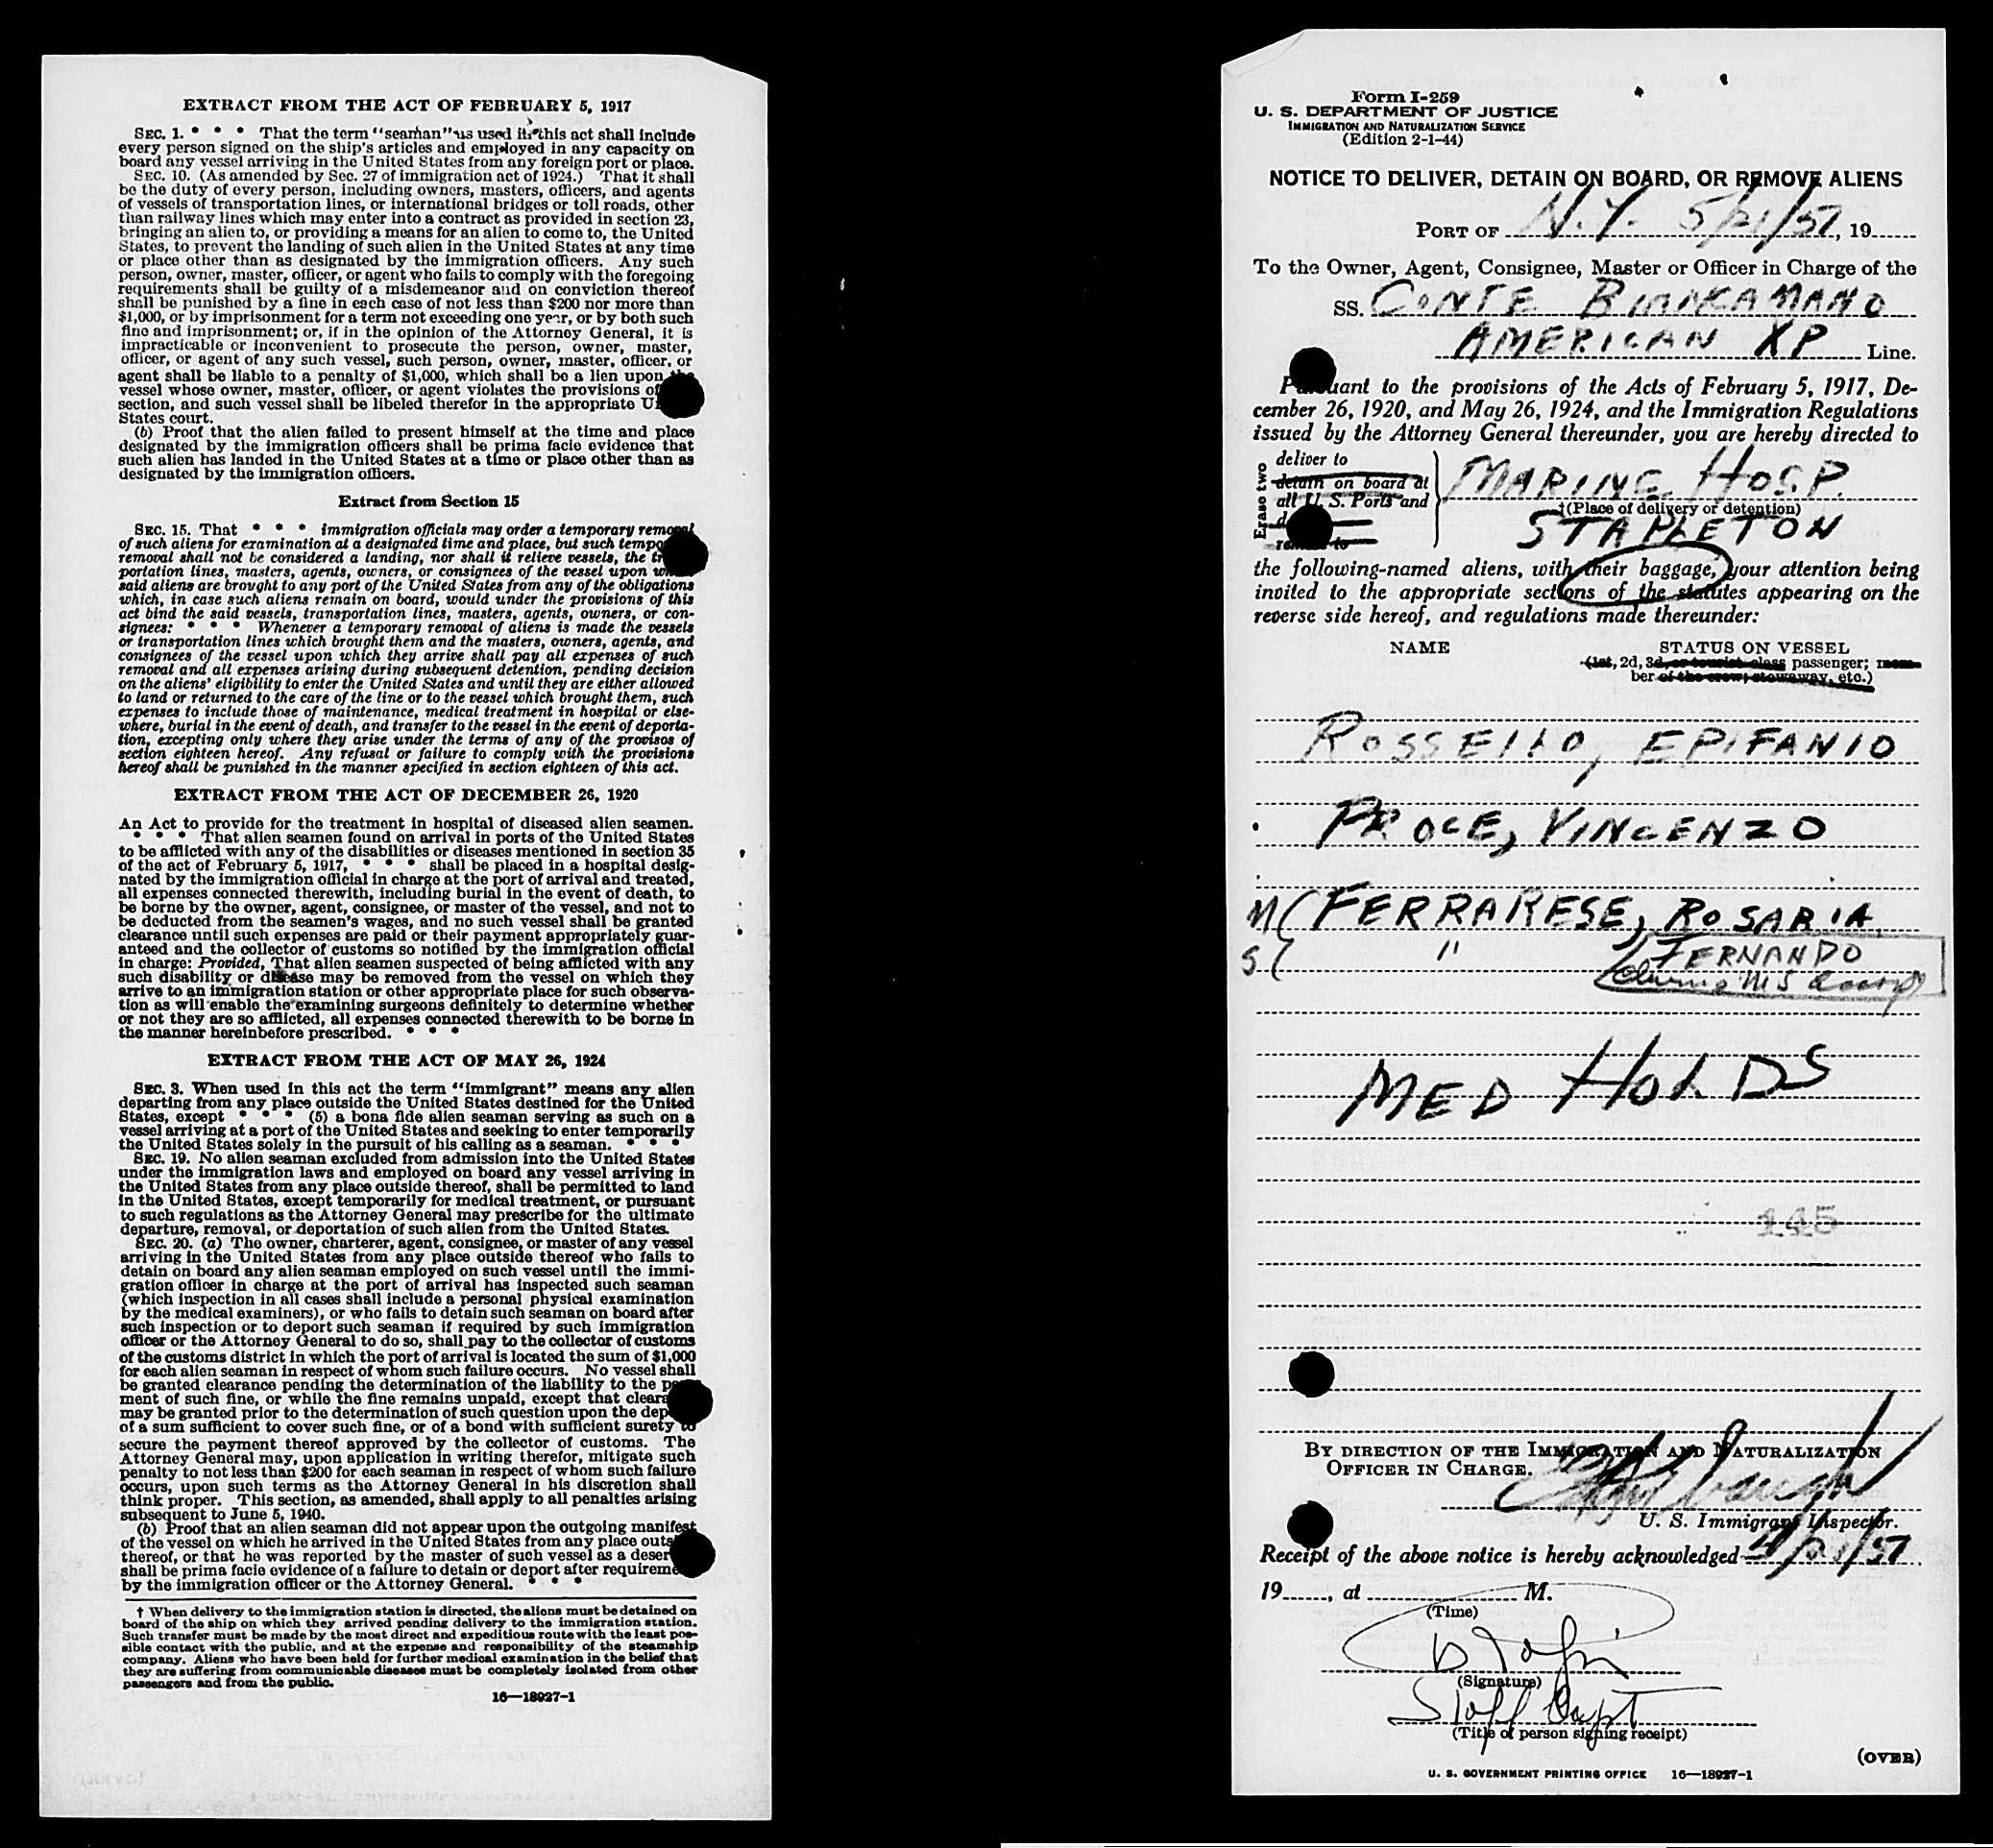 EXTRACT FROM THE ACT OF FEBRUARY 5, 1917
SEC. 1. * * * That the term "seaman" as used in this act shall include
every person signed on the ship's articles and employed in any capacity on
board any vessel arriving in the United States from any foreign port or place.
SEC. 10. (As amended by Sec. 27 of immigration act of 1924.) That it shall
be the duty of every person, including owners, masters, officers, and agents
of vessels of transportation lines, or international bridges or toll roads, other
than railway lines which may enter into a contract as provided in section 23,
bringing an alien to, or providing a means for an alien to come to, the United
States, to prevent the landing of such alien in the United States at any time
or place other than as designated by the immigration officers. Any such
person, owner, master, officer, or agent who fails to comply with the foregoing
requirements shall be guilty of a misdemeanor and on conviction thereof
shall be punished by a fine in each case of not less than $200 nor more than
$1,000, or by imprisonment for a term not exceeding one year, or by both such
fine and imprisonment; or, if in the opinion of the Attorney General, it is
impracticable or inconvenient to prosecute the person, owner, master,
officer, or agent of any such vessel, such person, owner, master, officer, or
agent shall be liable to a penalty of $1,000, which shall be a lien upon the
vessel whose owner, master, officer, or agent violates the provisions of
section, and such vessel shall be libeled therefor in the appropriate
States court.
(b) Proof that the alien failed to present himself at the time and place
designated by the immigration officers shall be prima facie evidence that
such alien has landed in the United States at a time or place other than as
designated by the immigration officers.
Extract from Section 15
SEC. 15. That * * * immigration officials may order a temporary removal
of such aliens for examination at a designated time and place, but such
removal shall not be considered a landing, nor shall it relieve vessels, the
portation lines, masters, agents, owners, or consignees of the vessel upon
said aliens are brought to any port of the United States from any of the obligations
which, in case such aliens remain on board, would under the provisions of this
act bind the said vessels, transportation lines, masters, agents, owners, or con-
signees: * * * Whenever a temporary removal of aliens is made the vessels
or transportation lines which brought them and the masters, owners, agents, and
consignees of the vessel upon which they arrive shall pay all expenses of such
removal and all expenses arising during subsequent detention, pending decision
on the aliens' eligibility to enter the United States and until they are either allowed
to land or returned to the care of the line or to the vessel which brought them, such
expenses to include those of maintenance, medical treatment in hospital or else-
where, burial in the event of death, and transfer to the vessel in the event of deporta-
tion, excepting only where they arise under the terms of any of the provisos of
section eighteen hereof. Any refusal or failure to comply with the provisions
hereof shall be punished in the manner specified in section eighteen of this act.
EXTRACT FROM THE ACT OF DECEMBER 26, 1920
An Act to provide for the treatment in hospital of diseased alien seamen.
* * * That alien seamen found on arrival in ports of the United States
to be afflicted with any of the disabilities or diseases mentioned in section 35
of the act of February 5, 1917, * * * shall be placed in a hospital desig-
nated by the immigration official in charge at the port of arrival and treated,
all expenses connected therewith, including burial in the event of death, to
be borne by the owner, agent, consignee, or master of the vessel, and not to
be deducted from the seamen's wages, and no such vessel shall be granted
clearance until such expenses are paid or their payment appropriately guar-
anteed and the collector of customs so notified by the immigration official
in charge: Provided, That alien seamen suspected of being afflicted with any
such disability or disease may be removed from the vessel on which they
arrive to an immigration station or other appropriate place for such observa-
tion as will enable the examining surgeons definitely to determine whether
or not they are so afflicted, all expenses connected therewith to be borne in
the manner hereinbefore prescribed. * * *
EXTRACT FROM THE ACT OF MAY 26, 1924
SEC. 3. When used in this act the term "immigrant" means any alien
departing from any place outside the United States destined for the United
States, except * * * (5) a bona fide alien seaman serving as such on a
vessel arriving at a port of the United States and seeking to enter temporarily
the United States solely in the pursuit of his calling as a seaman. * * *
SEC. 19. No alien seaman excluded from admission into the United States
under the immigration laws and employed on board any vessel arriving in
the United States from any place outside thereof, shall be permitted to land
in the United States, except temporarily for medical treatment, or pursuant
to such regulations as the Attorney General may prescribe for the ultimate
departure, removal, or deportation of such alien from the United States.
SEC. 20. (a) The owner, charterer, agent, consignee, or master of any vessel
arriving in the United States from any place outside thereof who fails to
detain on board any alien seaman employed on such vessel until the immi-
gration officer in charge at the port of arrival has inspected such seaman
(which inspection in all cases shall include a personal physical examination
by the medical examiners), or who fails to detain such seaman on board after
such inspection or to deport such seaman if required by such immigration
officer or the Attorney General to do so, shall pay to the collector of customs
of the customs district in which the port of arrival is located the sum of $1,000
for each alien seaman in respect of whom such failure occurs. No vessel shall
be granted clearance pending the determination of the liability to the
ment of such fine, or while the fine remains unpaid, except that
may be granted prior to the determination of such question upon the
of a sum sufficient to cover such fine, or of a bond with sufficient surety to
secure the payment thereof approved by the collector of customs. The
Attorney General may, upon application in writing therefor, mitigate such
penalty to not less than $200 for each seaman in respect of whom such failure
occurs, upon such terms as the Attorney General in his discretion shall
think proper. This section, as amended, shall apply to all penalties arising
subsequent to June 5, 1940.
(b) Proof that an alien seaman did not appear upon the outgoing manifest
of the vessel on which he arrived in the United States from any place
thereof, or that he was reported by the master of such vessel as a
shall be prima facie evidence of a failure to detain or deport after
by the immigration officer or the Attorney General. * * *
† When delivery to the immigration station is directed, the aliens must be detained on
board of the ship on which they arrived pending delivery to the immigration station.
Such transfer must be made by the most direct and expeditious route with the least pos-
sible contact with the public, and at the expense and responsibility of the steamship
company. Aliens who have been held for further medical examination in the belief that
they are suffering from communicable diseases must be completely isolated from other
passengers and from the public.
16—18927-1
Form I-259
U. S. DEPARTMENT OF JUSTICE
IMMIGRATION AND NATURALIZATION SERVICE
(Edition 2-1-44)
NOTICE TO DELIVER, DETAIN ON BOARD, OR REMOVE ALIENS
PORT OF N.Y. 5/21/57, 19
To the Owner, Agent, Consignee, Master or Officer in Charge of the
SS. CONTE BIANCAMANO
AMERICAN XP Line.
Pursuant to the provisions of the Acts of February 5, 1917, De-
cember 26, 1920, and May 26, 1924, and the Immigration Regulations
issued by the Attorney General thereunder, you are hereby directed to
Erase two
deliver to
detain on board at
all U. S. Ports and
remove to
MARINE HOSP.
†(Place of delivery or detention)
STAPLETON
the following-named aliens, with their baggage, your attention being
invited to the appropriate sections of the statutes appearing on the
reverse side hereof, and regulations made thereunder:
NAME STATUS ON VESSEL
(1st, 2d, 3d, or tourist class passenger; mem-
ber of the crew; stowaway, etc.)
ROSSELLO, EPIFANIO
PROCE, VINCENZO
M ( FERRARESE, ROSARIA
S ( " FERNANDO
MED HOLDS
145
BY DIRECTION OF THE IMMIGRATION AND NATURALIZATION
OFFICER IN CHARGE.
U. S. Immigrant Inspector.
Receipt of the above notice is hereby acknowledged /21/57
19, at M.
(Time)
(Signature)
Staff Capt
(Title of person signing receipt)
(OVER)
U. S. GOVERNMENT PRINTING OFFICE 16—18927-1